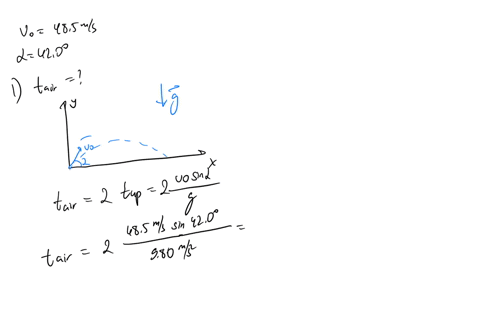 v₀ = 48.5 m/s
α = 42.0°
1) t air = ?
y
g
v₀
α
x
t air = 2 t up = 2 v₀ sin α / g
t air = 2 48.5 m/s sin 42.0° / 9.80 m/s² =